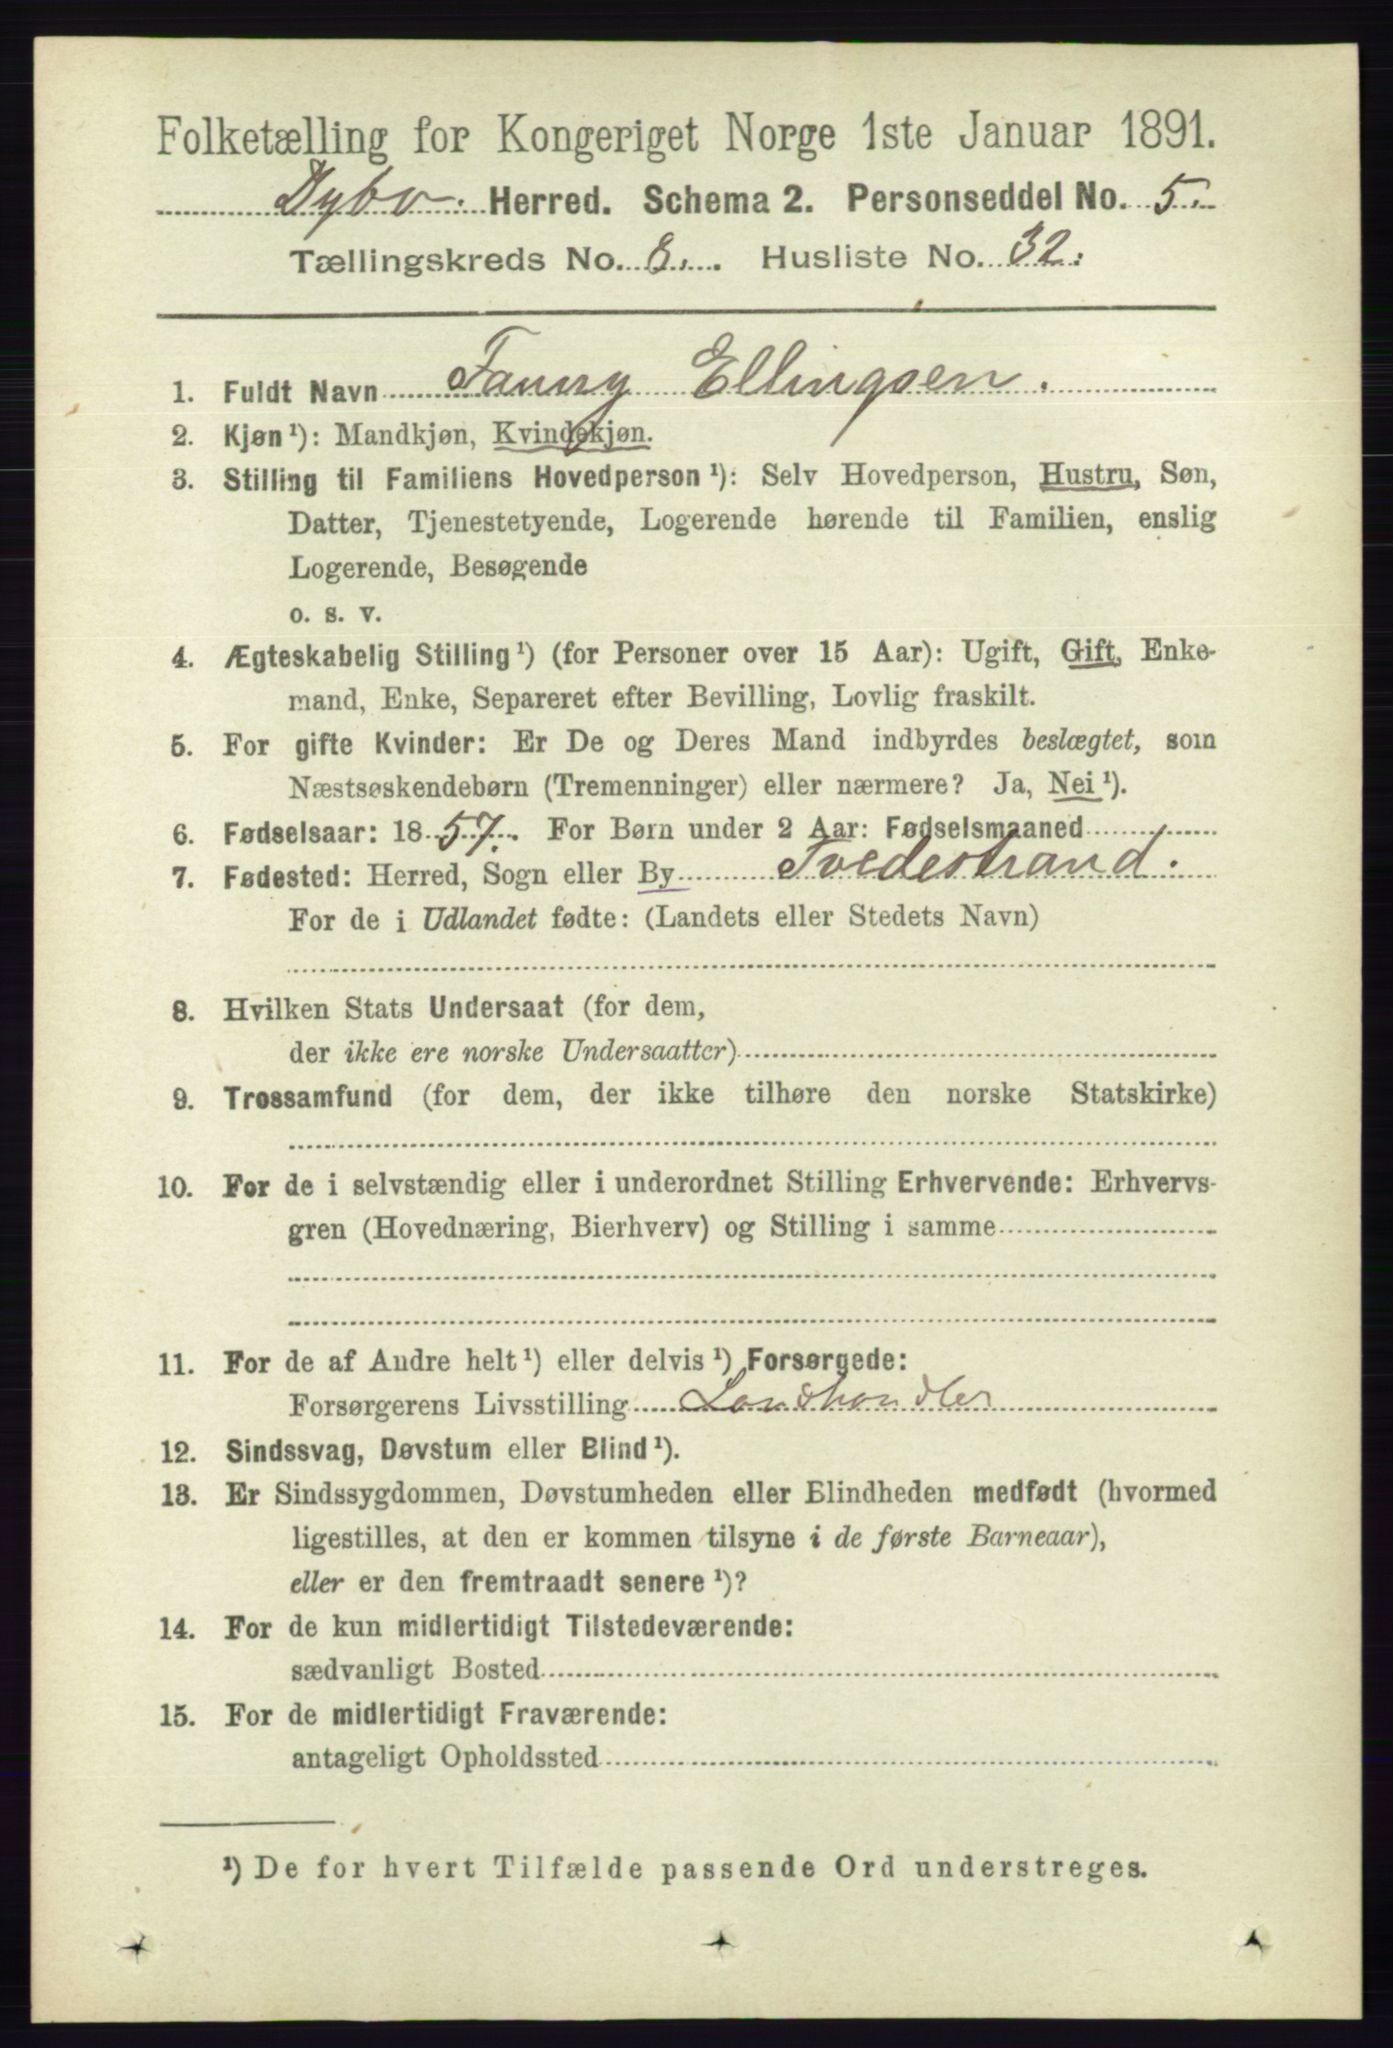 Folketælling for Kongeriget Norge 1ste Januar 1891.
Dybv. Herred. Schema 2. Personseddel No. 5.
Tællingskreds No. 8. Husliste No. 32.
1. Fuldt Navn Fanny Ellingsen.
2. Kjøn¹): Mandkjøn, Kvindekjøn.
3. Stilling til Familiens Hovedperson¹): Selv Hovedperson, Hustru, Søn,
Datter, Tjenestetyende, Logerende hørende til Familien, enslig
Logerende, Besøgende
o. s. v.
4. Ægteskabelig Stilling¹) (for Personer over 15 Aar): Ugift, Gift, Enke-
mand, Enke, Separeret efter Bevilling, Lovlig fraskilt.
5. For gifte Kvinder: Er De og Deres Mand indbyrdes beslægtet, som
Næstsøskendebørn (Tremenninger) eller nærmere? Ja, Nei¹).
6. Fødselsaar: 1857. For Børn under 2 Aar: Fødselsmaaned
7. Fødested: Herred, Sogn eller By Tvedestrand.
For de i Udlandet fødte: (Landets eller Stedets Navn)
8. Hvilken Stats Undersaat (for dem,
der ikke ere norske Undersaatter)
9. Trossamfund (for dem, der ikke tilhøre den norske Statskirke)
10. For de i selvstændig eller i underordnet Stilling Erhvervende: Erhvervs-
gren (Hovednæring, Bierhverv) og Stilling i samme
11. For de af Andre helt¹) eller delvis¹) Forsørgede:
Forsørgerens Livsstilling Landhandler
12. Sindssvag, Døvstum eller Blind¹).
13. Er Sindssygdommen, Døvstumheden eller Blindheden medfødt (hvormed
ligestilles, at den er kommen tilsyne i de første Barneaar),
eller er den fremtraadt senere¹)?
14. For de kun midlertidigt Tilstedeværende:
sædvanligt Bosted
15. For de midlertidigt Fraværende:
antageligt Opholdssted
¹) De for hvert Tilfælde passende Ord understreges.